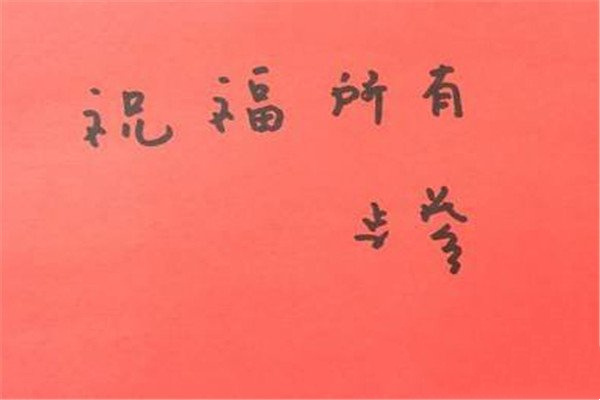 祝福所有